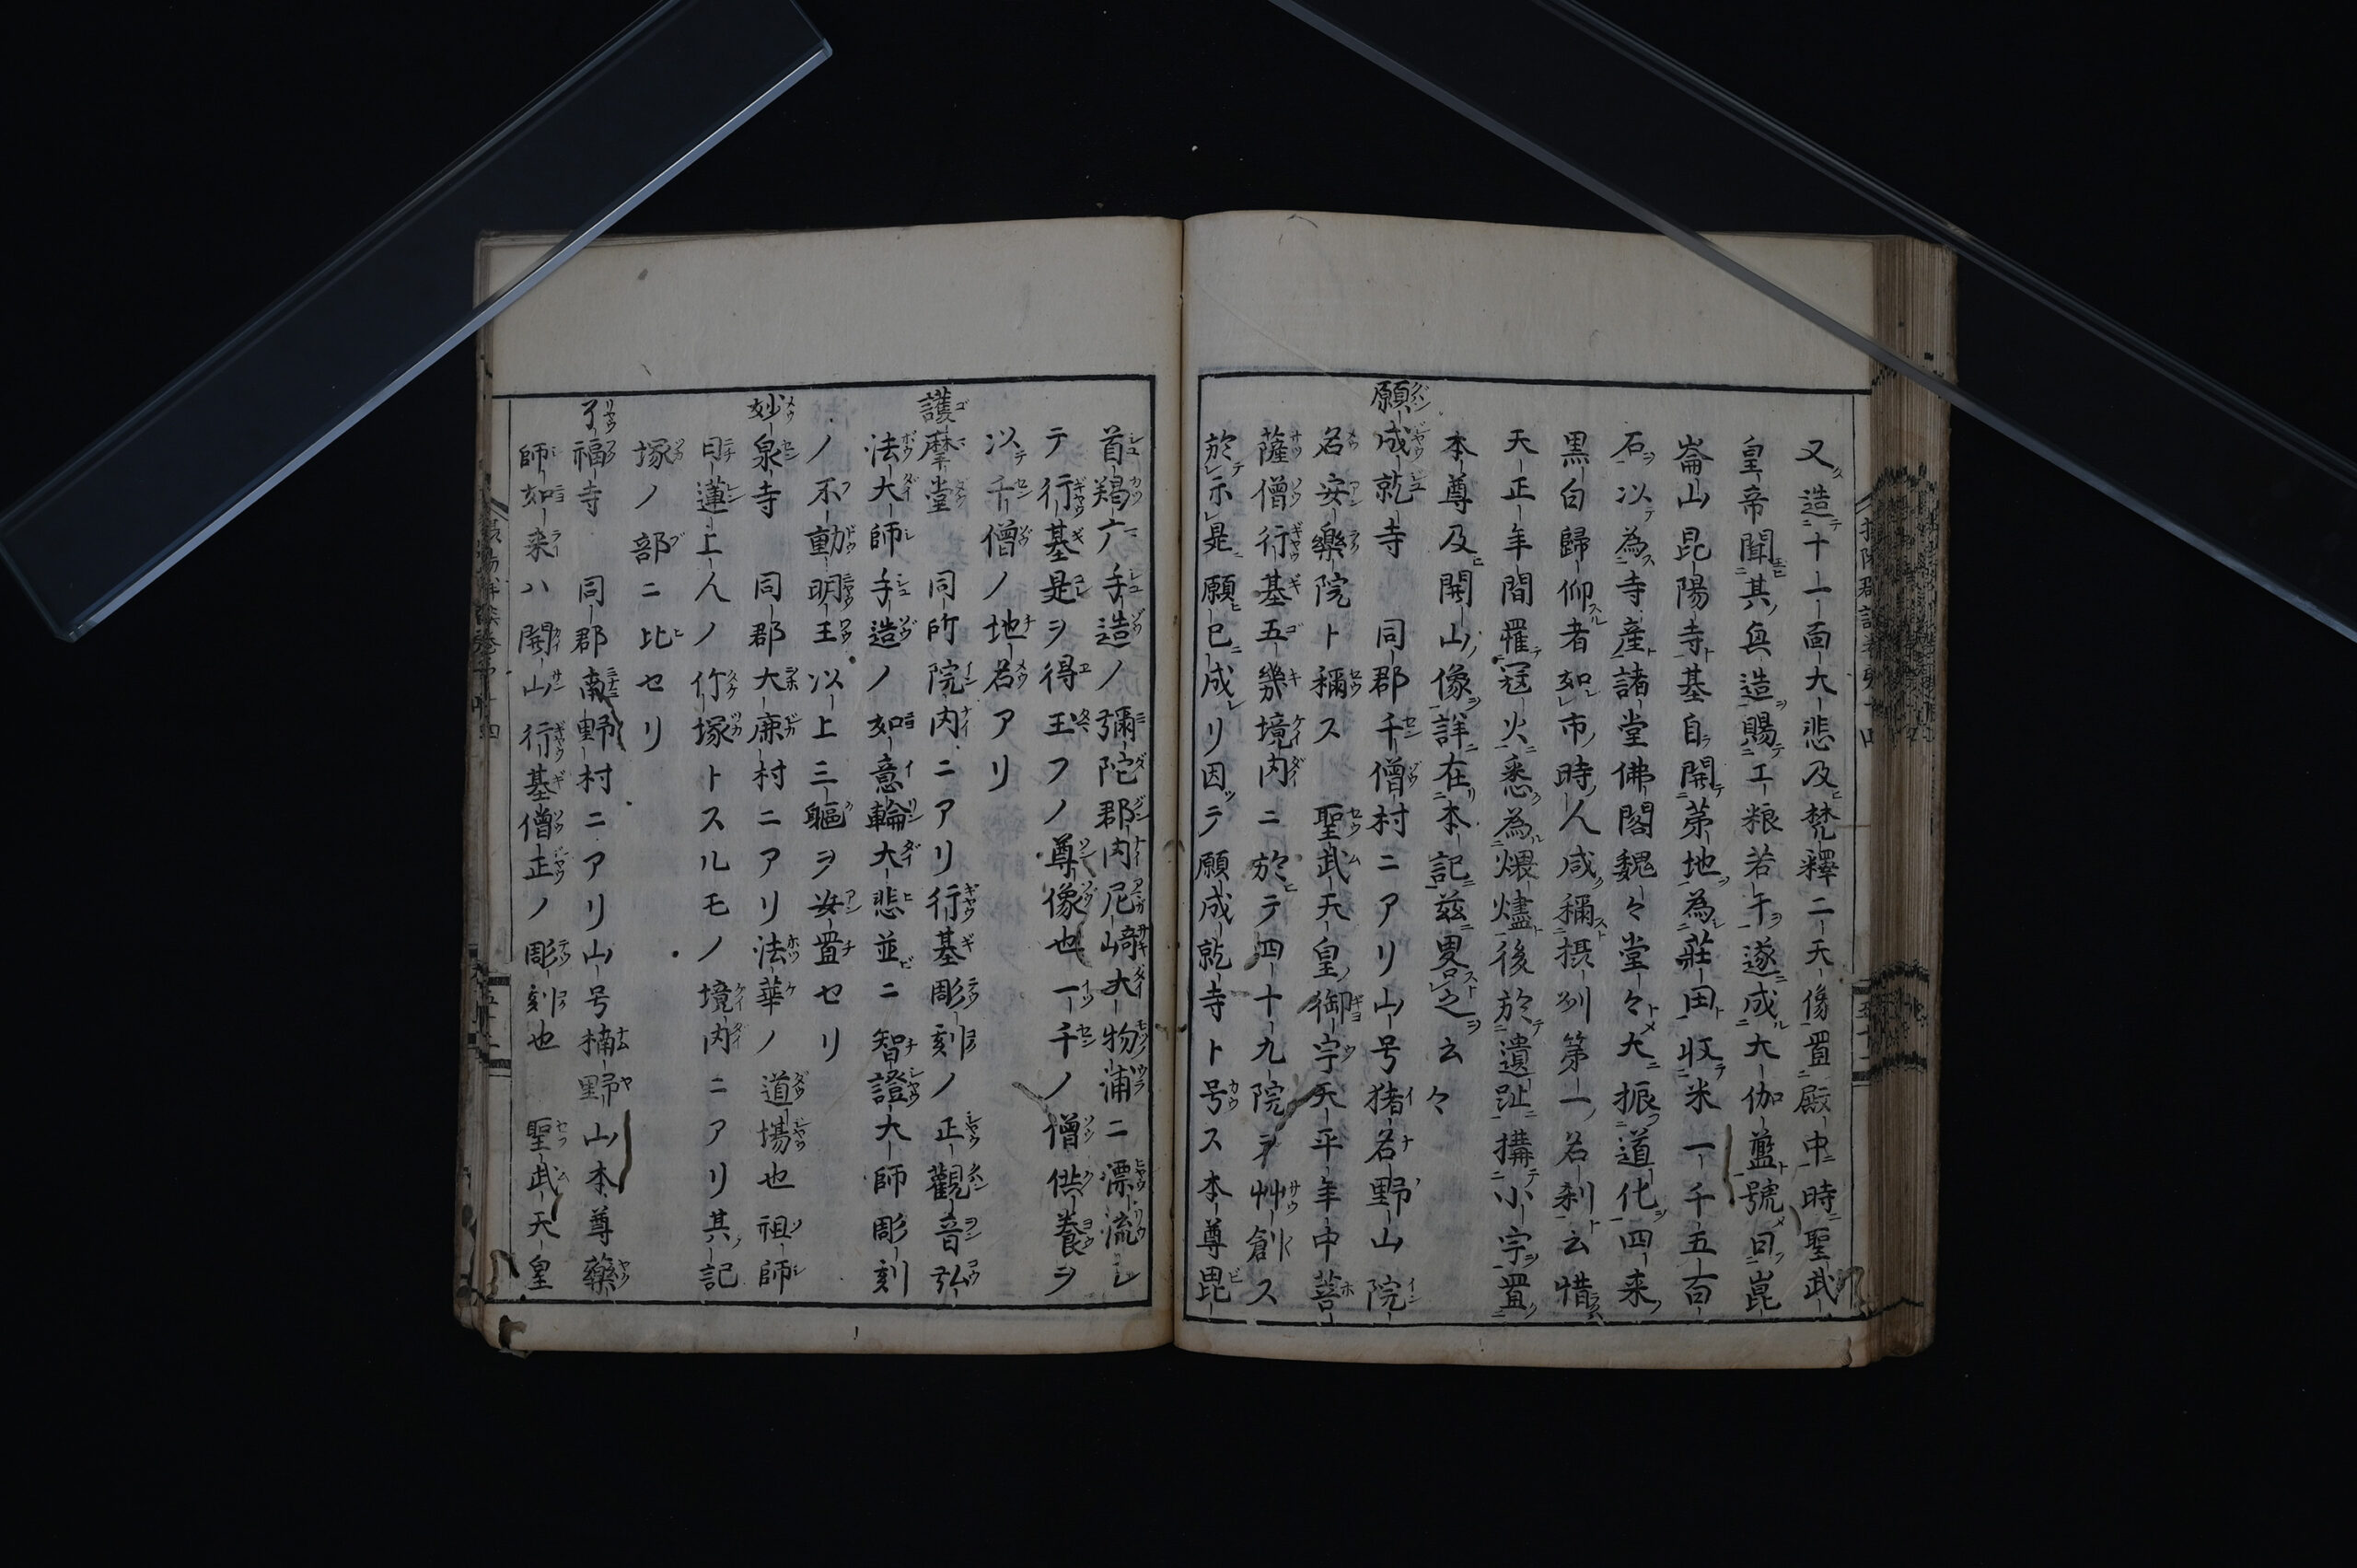 又造十一面大悲及梵釋二天像置殿中時聖武
皇帝聞其興造賜工粮若干遂成大伽藍號曰崑
崙山昆陽寺基自開第地為莊田收米一千五百
石以為寺産諸堂佛閣魏々堂々大振道化四来
黒白歸仰者如市時人咸稱摂州第一名刹云惜
天正年間罹冦火悉為煨燼後於遺趾搆小宇置
本尊及開山像詳在本記茲畧之云々
願成就寺 同郡千僧村ニアリ山号猪名野山院
名安樂院ト稱ス 聖武天皇御宇天平年中菩
薩僧行基五畿境内ニ於テ四十九院ヲ艸創ス
於示是願已成レリ因テ願成就寺ト号ス本尊毘
首羯广手造ノ彌陀郡内尼﨑大物浦ニ漂流レ
テ行基是ヲ得玉フノ尊像也一千ノ僧供養ヲ
以千僧ノ地名アリ
護摩堂 同所院内ニアリ行基彫刻ノ正觀音弘
法大師手造ノ如意輪大悲並ニ智證大師彫刻
ノ不動明王以上三軀ヲ安置セリ
妙泉寺 同郡大鹿村ニアリ法華ノ道場也祖師
日蓮上人ノ竹塚トスルモノ境内ニアリ其記
塚ノ部ニ比セリ
了福寺 同郡南野村ニアリ山号楠野山本尊藥
師如来ハ開山行基僧正ノ彫刻也 聖武天皇